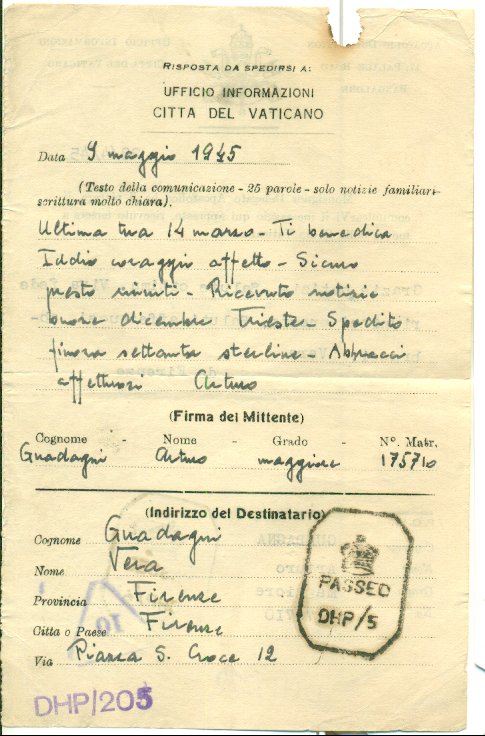 RISPOSTA DA SPEDIRSI A:
UFFICIO INFORMAZIONI
CITTA DEL VATICANO
Data 9 maggio 1945
(Testo della comunicazione - 25 parole - solo notizie familiari-
scrittura molto chiara).
Ultima tua 14 marzo - Ti benedica
Iddio coraggio affetto - Sicuro
presto riuniti - Ricevuto notizie
buone dicembre Trieste - Spedito
finora settanta sterline - Abbracci
affettuosi Arturo
(Firma del Mittente)
Cognome - Nome - Grado - Nº. Matr.
Guadagni Arturo maggiore 175710
(Indirizzo del Destinatario)
Cognome Guadagni
Nome Vera
Provincia Firenze
Citta o Paese Firenze
Via Piazza S. Croce 12
PASSED
DHP/5
DHP/205